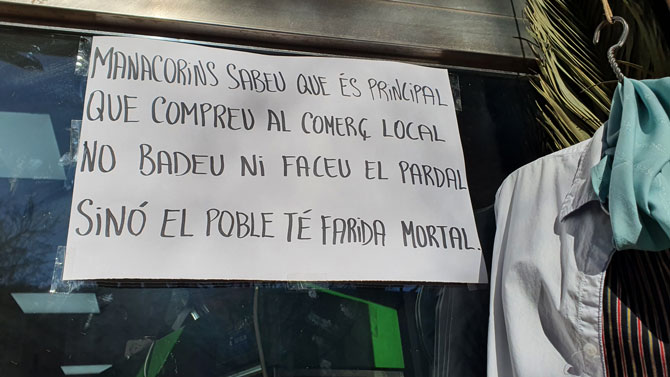 MANACORINS SABEU QUE ÉS PRINCIPAL
QUE COMPREU AL COMERÇ LOCAL
NO BADEU NI FACEU EL PARDAL
SINÓ EL POBLE TÉ FARIDA MORTAL.